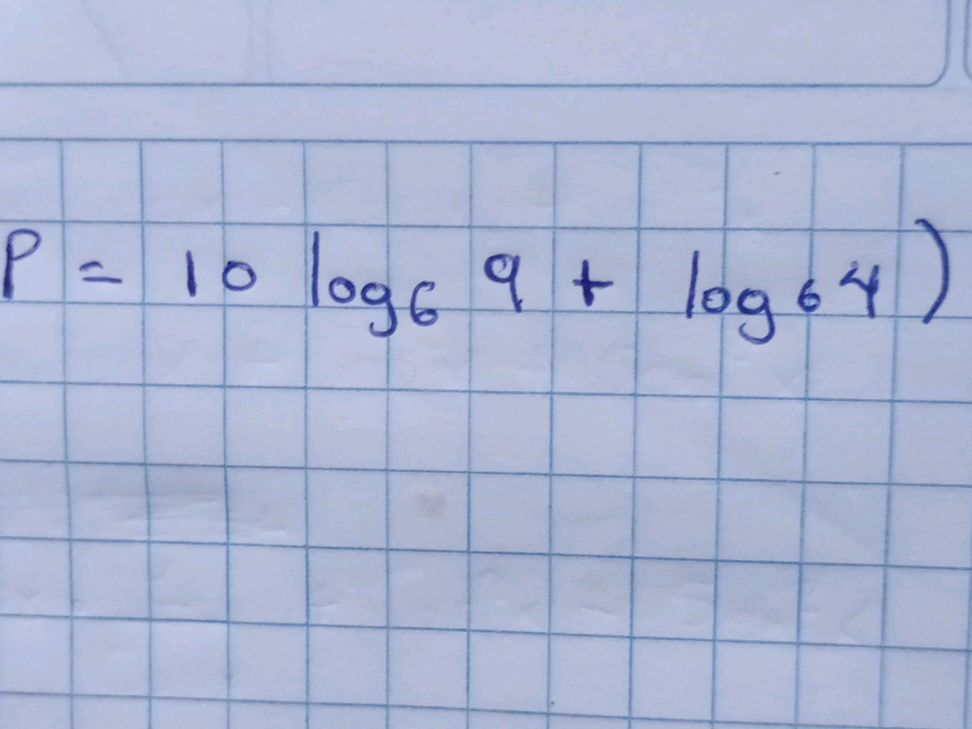 P = 10 log₆ 9 + log₆ 4)